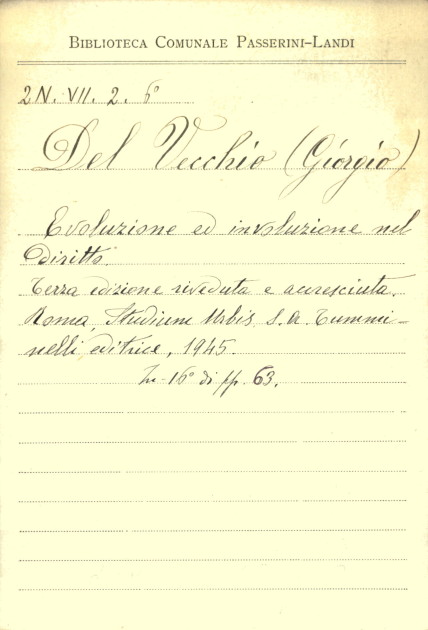 BIBLIOTECA COMUNALE PASSERINI-LANDI
2N. VII. 2. 6°
Del Vecchio (Giorgio)
Evoluzione ed involuzione nel
diritto.
Terza edizione riveduta e accresciuta.
Roma, Studium Urbis s. a. Tummi-
nelli editrice, 1945.
In-16° di pp. 63.